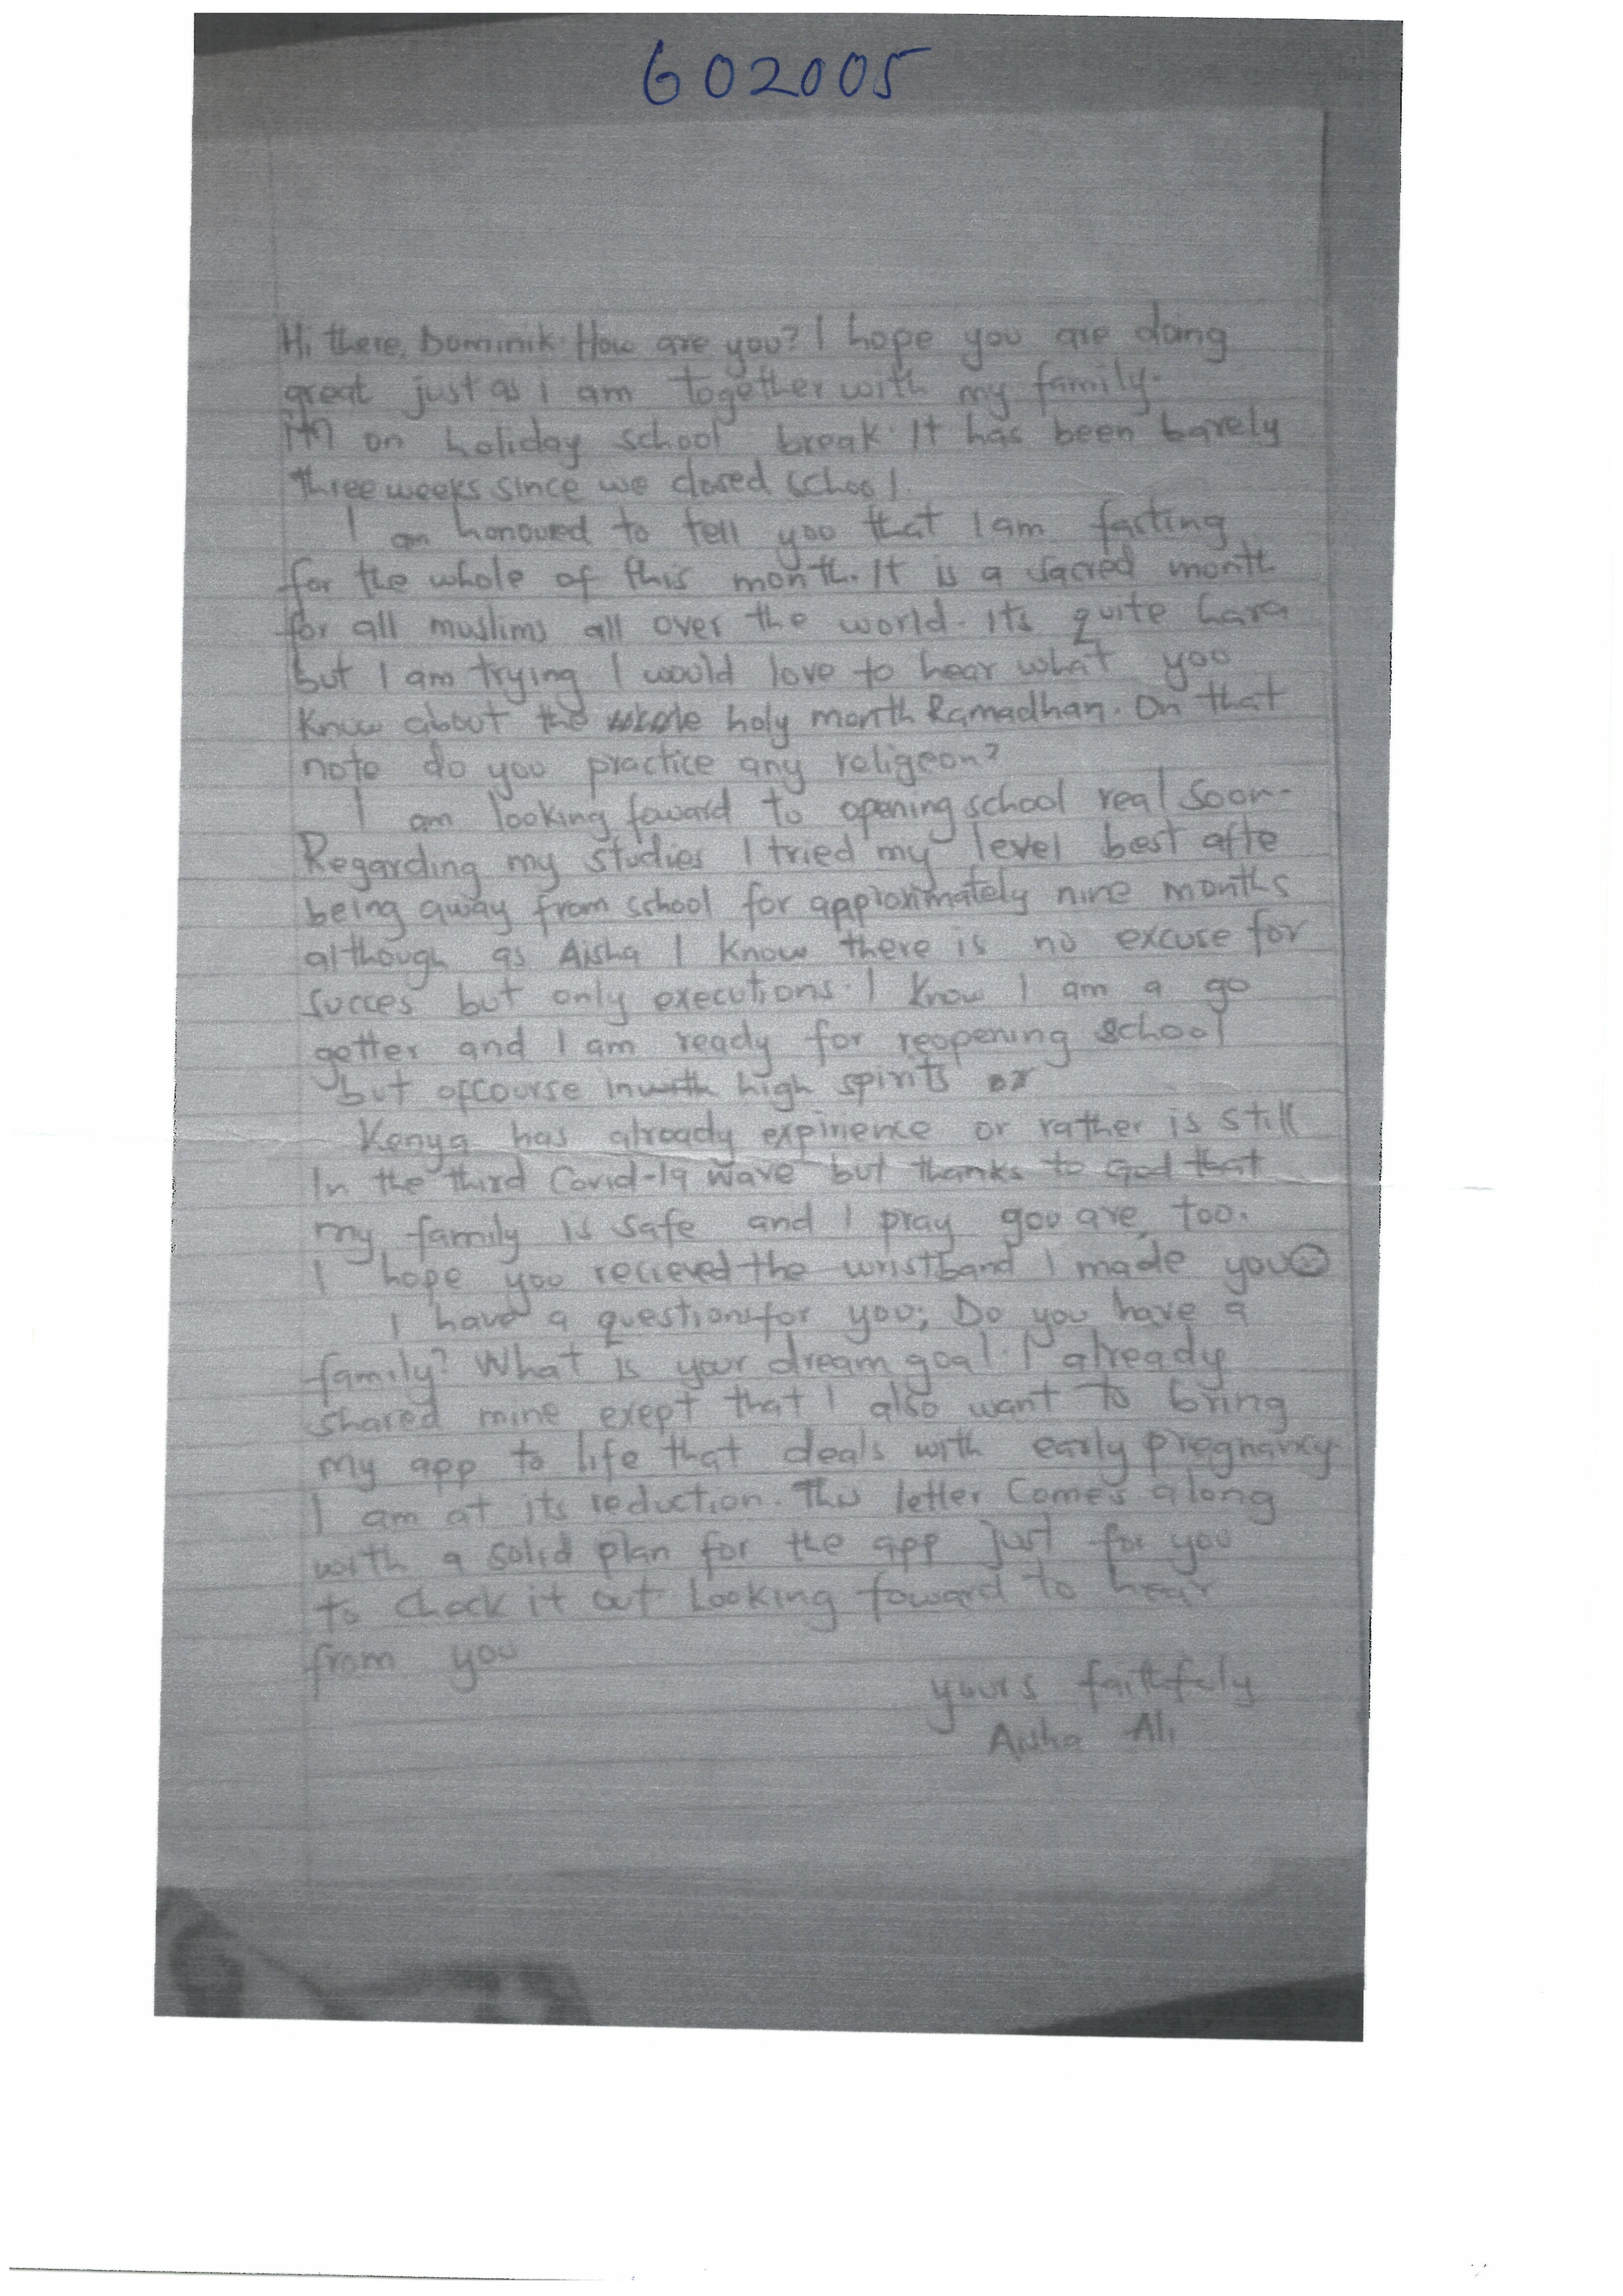 602005
Hi there, Dominik. How are you? I hope you are doing
great just as i am together with my family.
I'm on holiday school break. It has been barely
three weeks since we closed school.
I am honoured to tell you that I am fasting
for the whole of this month. It is a sacred month
for all muslims all over the world. Its quite hard
but I am trying. I would love to hear what you
know about the holy month Ramadhan. On that
note do you practice any religeon?
I am looking foward to opening school real soon.
Regarding my studies I tried my level best afte
being away from school for approximately nine months
although as Aisha I know there is no excuse for
succes but only executions. I know I am a go
getter and I am ready for reopening school
but ofcourse in high spirits
Kenya has already expirience or rather is still
In the third Covid-19 wave but thanks to God that
my family is safe and I pray you are too.
I hope you recieved the wristband I made you☺
I have a questions for you; Do you have a
family? What is your dream goal. I already
shared mine exept that I also want to bring
my app to life that deals with early pregnancy.
I am at its reduction. This letter comes along
with a solid plan for the app just for you
to check it out. Looking foward to hear
from you
yours faithfuly
Aisha Ali